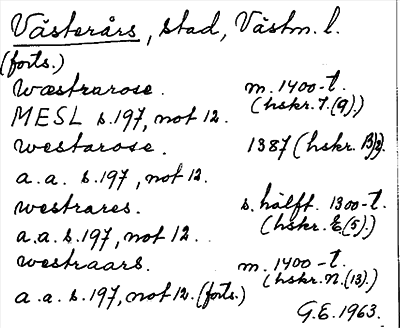 Västerårs, stad, Västm. l.
(forts.)
wæstrarose. m. 1400-t.
(hskr. J. (9).)
MESL s. 197, not 12.
westarose. 1387 (hskr. B/2).
a. a. s. 197, not 12.
westrares. s. hälft. 1300-t.
(hskr. E. (5).)
a. a. s. 197, not 12.
westraars. m. 1400-t.
(hskr. N. (13).)
a. a. s. 197, not 12. (forts.)
G.E. 1963.